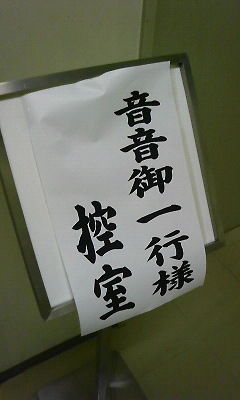 音音御一行様
控室